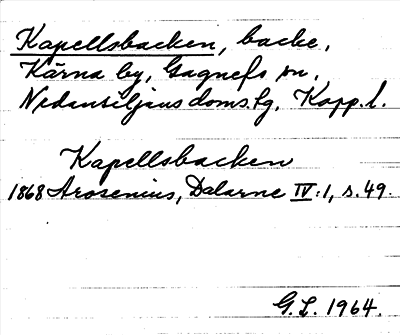 Kapellsbacken, backe,
Kärna by, Gagnefs sn,
Nedansiljans doms.lg, Kopp.l.
Kapellsbacken
1868 Arosenius, Dalarne IV:1, s.49.
G.L. 1964.